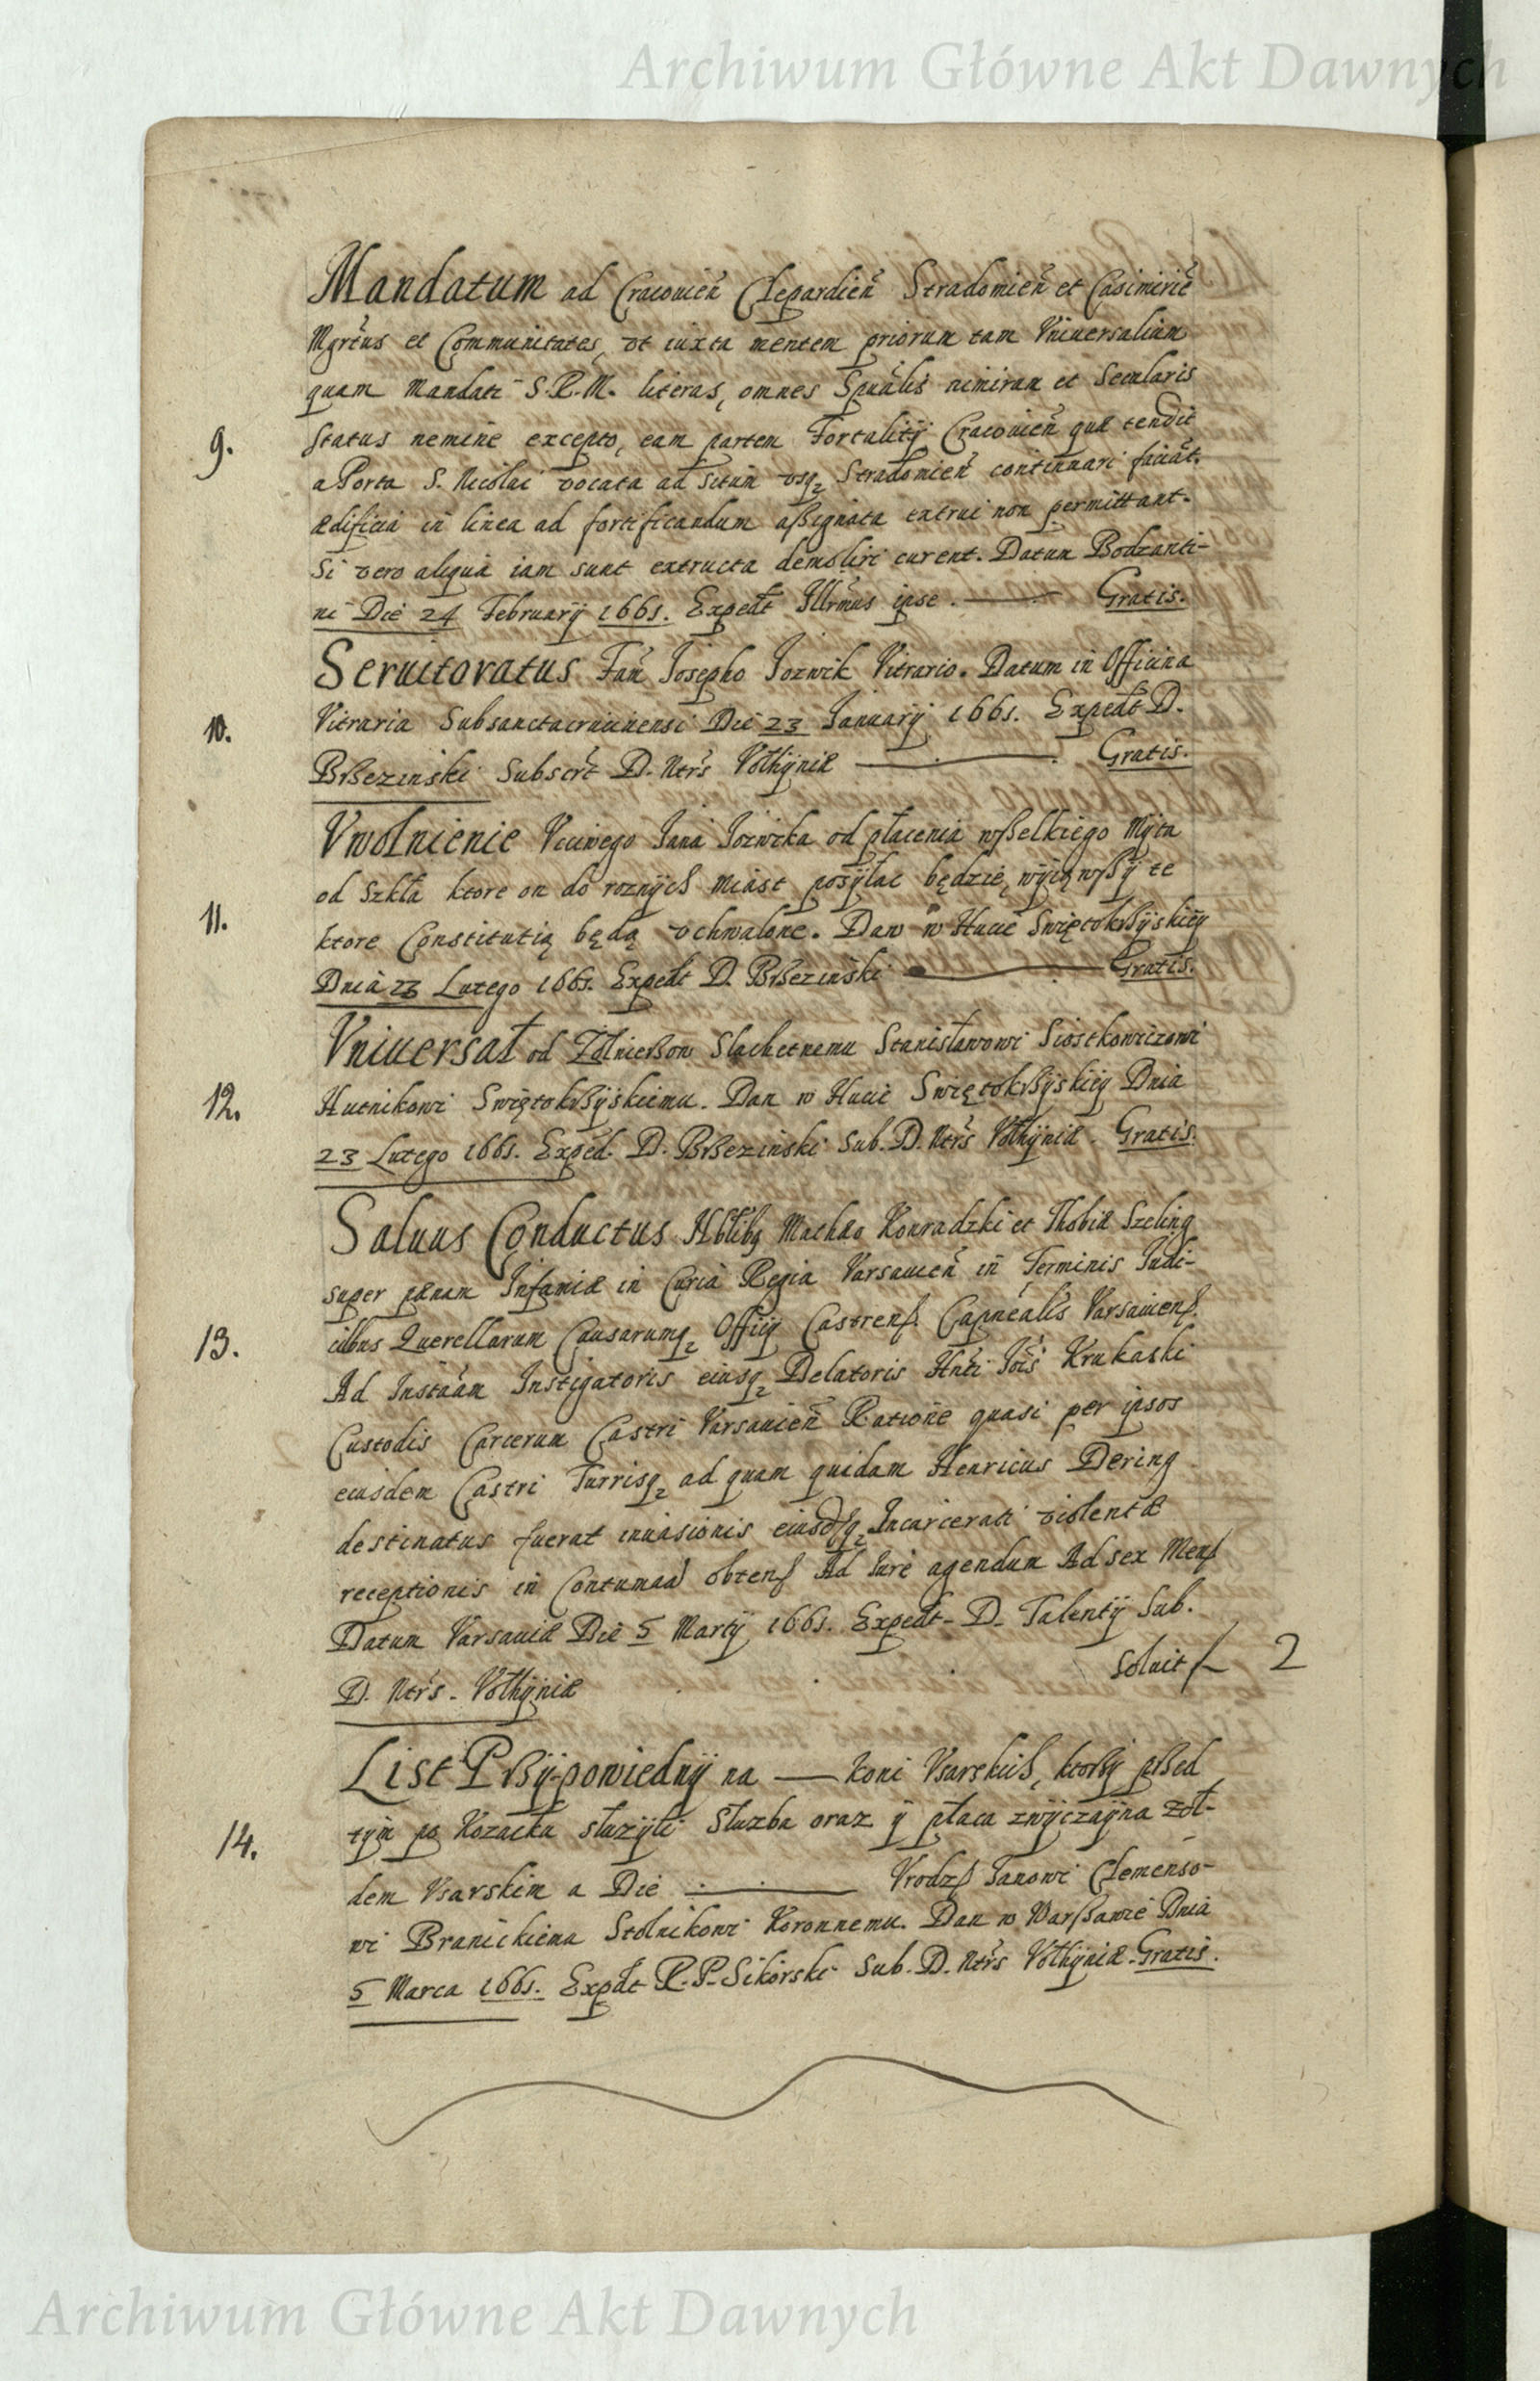 Archiwum Główne Akt Dawnych
Mandatum ad Cracouień Clepardień Stradomień et Casimirień
Mgrtus et Communitates, vt iuxta mentem priorum tam Vniuersalium
quam Mandati S.R.M. literas, omnes Spualis nimirum et Secularis
9. Status nemine excepto, eam partem Fortalitij Cracouień quæ tendit
a Porta S. Nicolai vocata ad situm vsq Stradomień continuari faciat.
Ædificia in linea ad fortificandum aßignata extrui non permittant.
Si vero aliqua iam sunt extructa demoliri curent. Datum Bodzanti-
ni Die 24 February 1661. Expedt Illrmus ipse. Gratis.
Seruitoratus Fam Iosepho Iozwik Vitrario. Datum in Officina
10. Vitraria Subsanctacrucinensi Die 23 January 1661. Expedt D.
Brzezinski Subscrt D. Ntrs Vołhyniæ Gratis.
Vwolnienie Vcciwego Jana Jozwika od płacenia wßelkiego Myta
od Szkła ktore on do roznych Miast posyłac będzie, wyiąwßy te
11. ktore Constitutią będą vchwalone. Dan w Hucie Swiętokrzyskiey
Dnia 23 Lutego 1661. Expedt D. Brzezinski Gratis.
Vniuersał od Zołnierzow Slachetnemu Stanisławowi Siostkowiczowi
12. Hutnikowi Swiętokrzyskiemu. Dan w Hucie Swiętokrzyskiey Dnia
23 Lutego 1661. Exped. D. Brzezinski Sub. D. Ntrs Vołhyniæ. Gratis.
Saluus Conductus Hbtlibq Mathæo Konradzki et Thobiæ Szeling
super pænam Infamiæ in Curia Regia Varsauień in Terminis Iudi-
cibus Querellarum Causarumq Officij Castrens. Capnealis Varsauiens.
13. Ad Instaam Instigatoris eiusq Delatoris Hnti Jois Krukaski
Custodis Carcerum Castri Varsauień Ratione quasi per ipsos
eiusdem Castri Turrisq ad quam quidam Henricus Dering
destinatus fuerat inuasionis eiusdq Incarcerati violentæ
receptionis in Contumad obtens Ad Iure agendum Ad sex Mens
Datum Varsauiæ Die 5 Martij 1661. Expedt D. Talentij Sub.
D. Ntrs. Vołhyniæ soluit f 2
List Przypowiedny na — Koni Vsarskich, ktorzy przed
tym po Kozacku słuzyli Słuzba oraz y płaca zwyczayna zoł-
14. dem Vsarskim a Die — Vrodz Janowi Clemenso-
wi Branickiemu Stolnikowi Koronnemu. Dan w Warßawie Dnia
5 Marca 1661. Expdt R.P. Sikorski Sub. D. Ntrs Vołhyniæ. Gratis.
Archiwum Główne Akt Dawnych